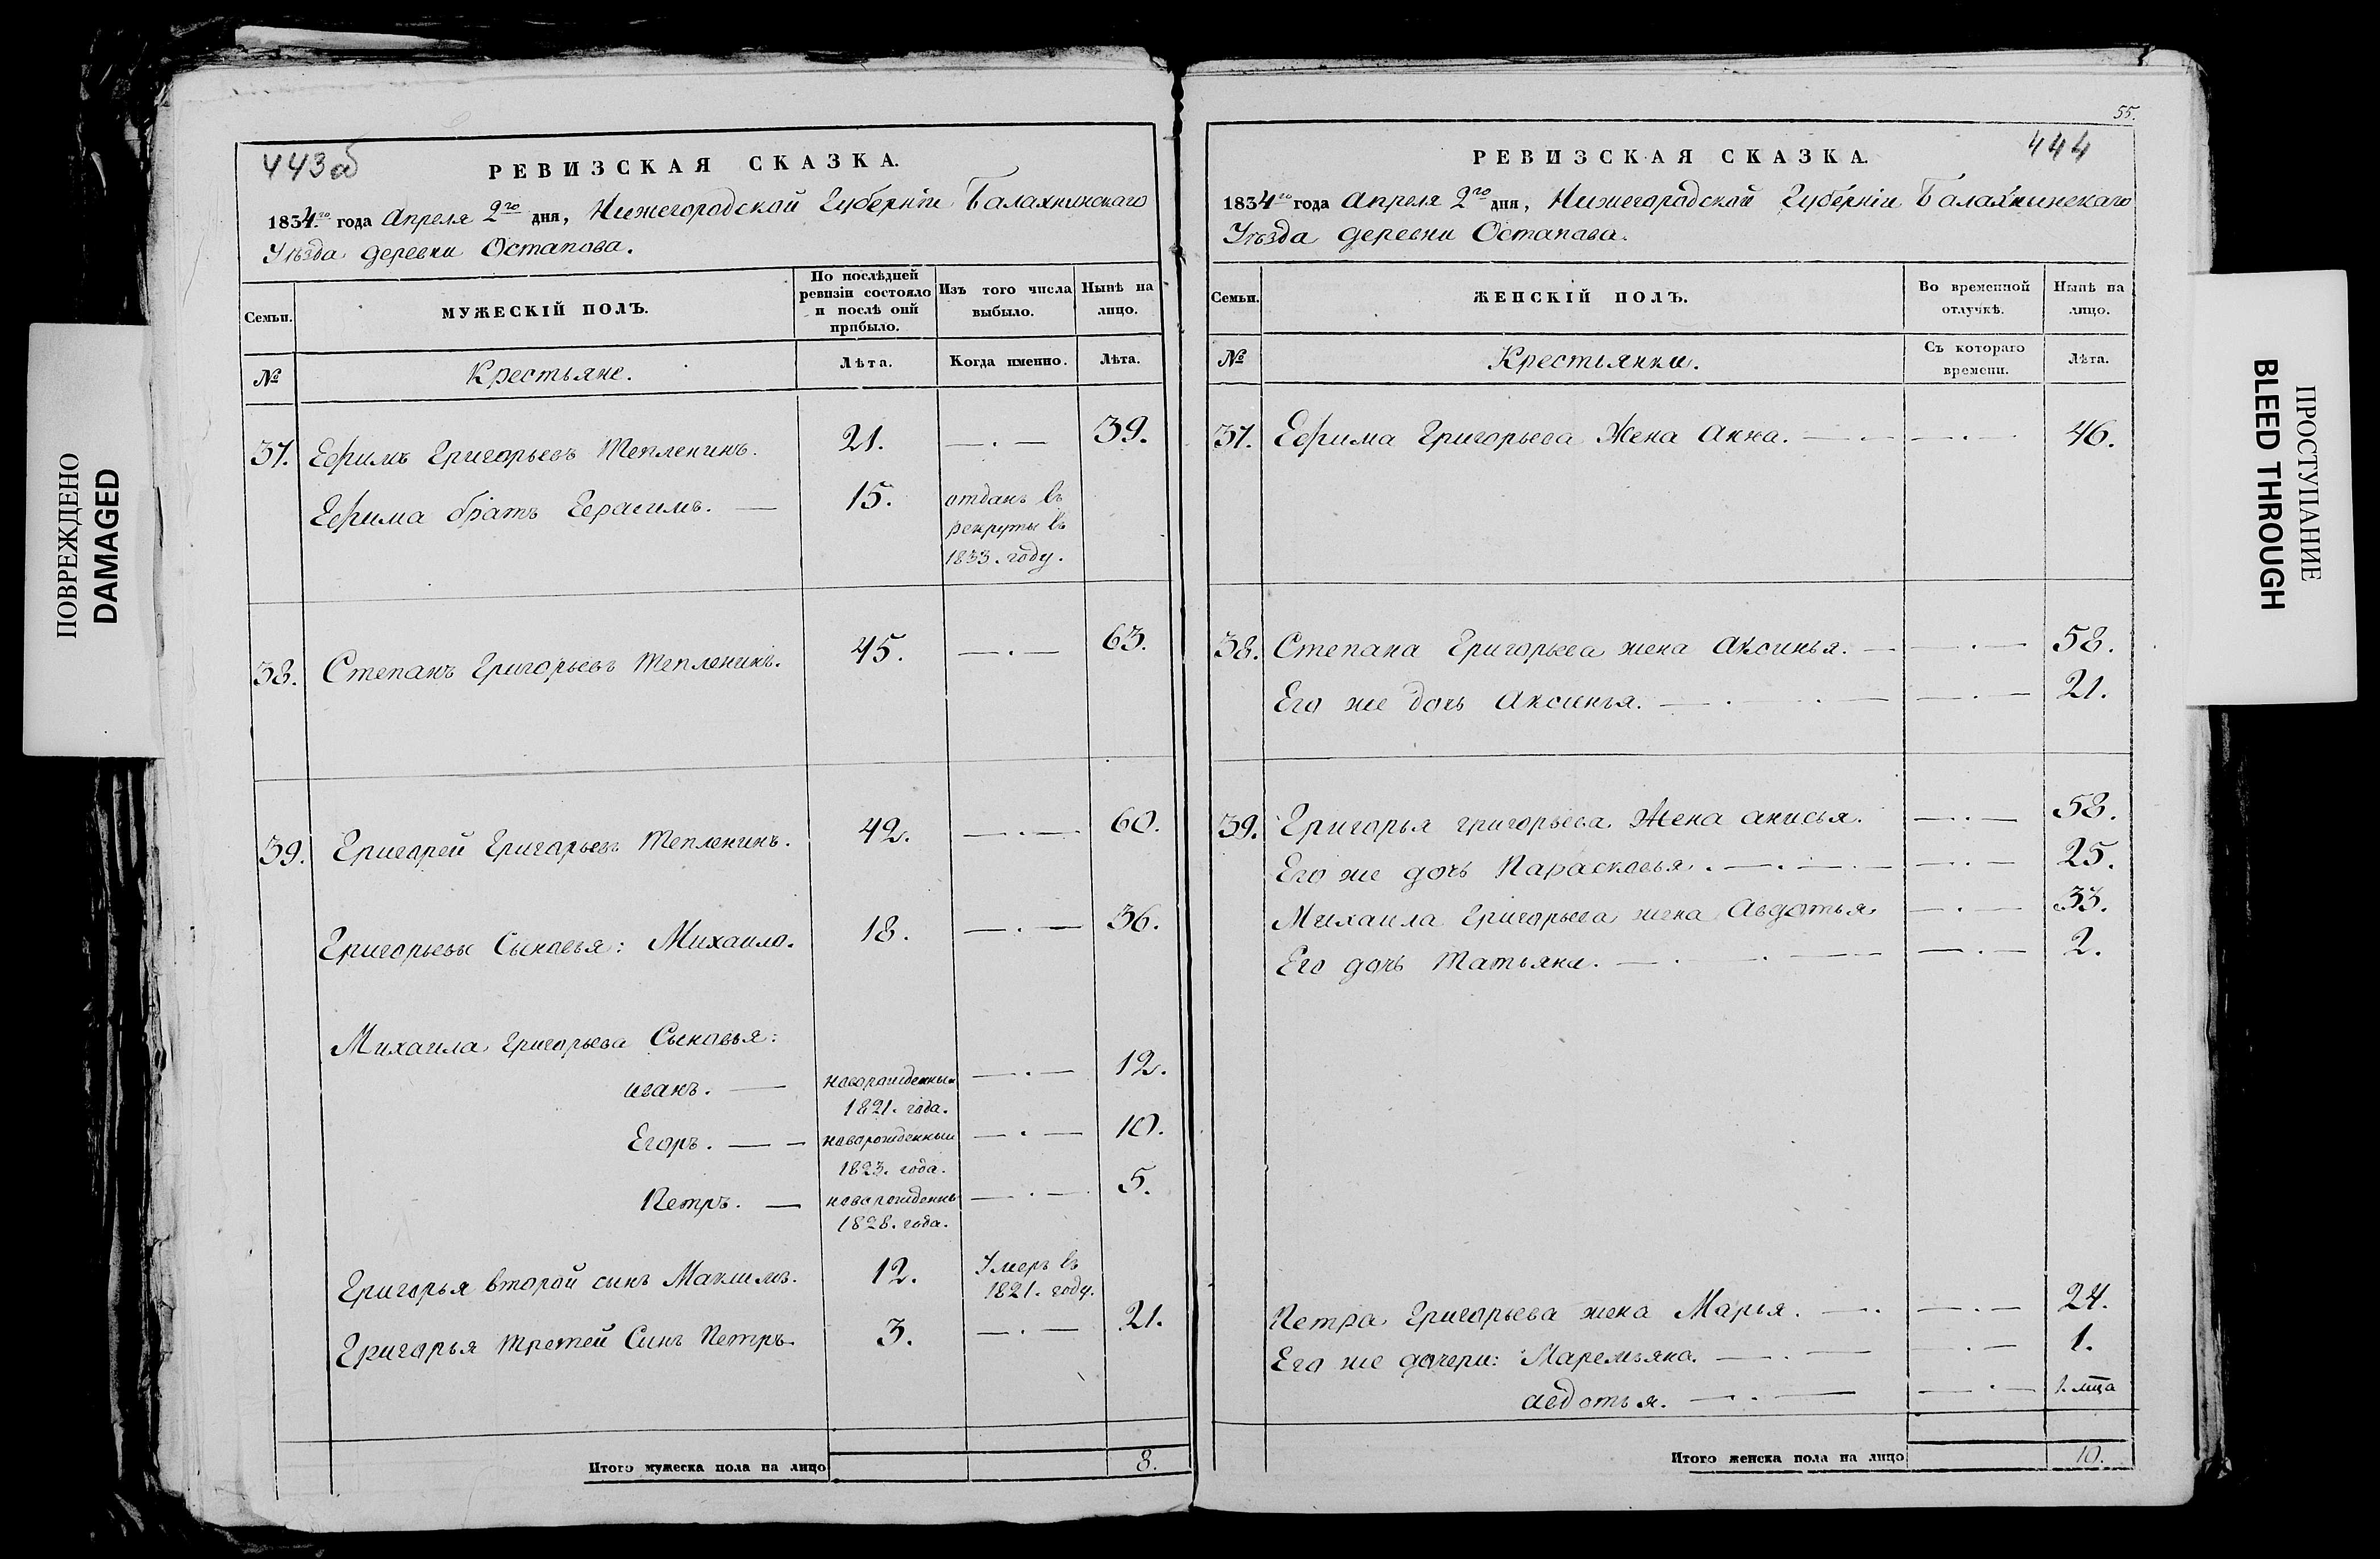 ПОВРЕЖДЕНО
DAMAGED
443об
РЕВИЗСКАЯ СКАЗКА.
1834го года Апреля 2го дня, Нижегородской Губернiи Балахнинскаго
Уѣзда деревни Остапова.
Семьи.
МУЖЕСКIЙ ПОЛЪ.
По послѣдней ревизiи состояло и послѣ онй прибыло.
Изъ того числа выбыло.
Нынѣ на лицо.
№
Крестьяне.
Лѣта.
Когда именно.
Лѣта.
37. Ефимъ Григорьевъ Тепленинъ. 21. — . — 39.
Ефима братъ Герасимъ. — 15. отданъ въ
рекруты въ
1833. году.
38. Степанъ Григорьевъ Тепленинъ. 45. — . — 63.
39. Григорей Григорьевъ Тепленинъ. 42. — . — 60.
Григорьевы Сыновья: Михаило. 18. — . — 36.
Михаила Григорьева Сыновья:
иванъ. — новорожденный — . — 12.
1821. года.
Егоръ. — — новорожденный — . — 10.
1823. года.
Петръ. — новорожденны — . — 5.
1828. года.
Григорья второй сынъ Максимъ. 12. Умеръ въ
1821. году.
Григорья третей Сынъ Петръ. 3. — . — 21.
Итого мужеска пола на лицо 8.
55.
444
РЕВИЗСКАЯ СКАЗКА.
1834го года Апреля 2го дня, Нижегородской Губернiи Балахнинскаго
Уѣзда деревни Остапова.
Семьи.
ЖЕНСКIЙ ПОЛЪ.
Во временной отлучкѣ.
Нынѣ на лицо.
№
Крестьянки.
Съ котораго времени.
Лѣта.
37. Ефима Григорьева Жена Анна. — . — — . — 46.
38. Степана Григорьева жена Аксинья. — — . — 58.
Его же дочь Аксинья. — . . — — . — 21.
39. Григорья григорьева Жена анисья. — . — 58.
Его же дочь Парасковья. — . — . — — . — 25.
Михаила Григорьева жена Авдотья. — . — 33.
Его дочь Татьяна. — . . — — — . — 2.
Петра Григорьева жена Марья. — . — . — 24.
Его же дочери: Маремьяна. — . — — . — 1.
авдотья. — . — — . — 1. мца
Итого женска пола на лицо 10.
ПРОСТУПАНИЕ
BLEED THROUGH